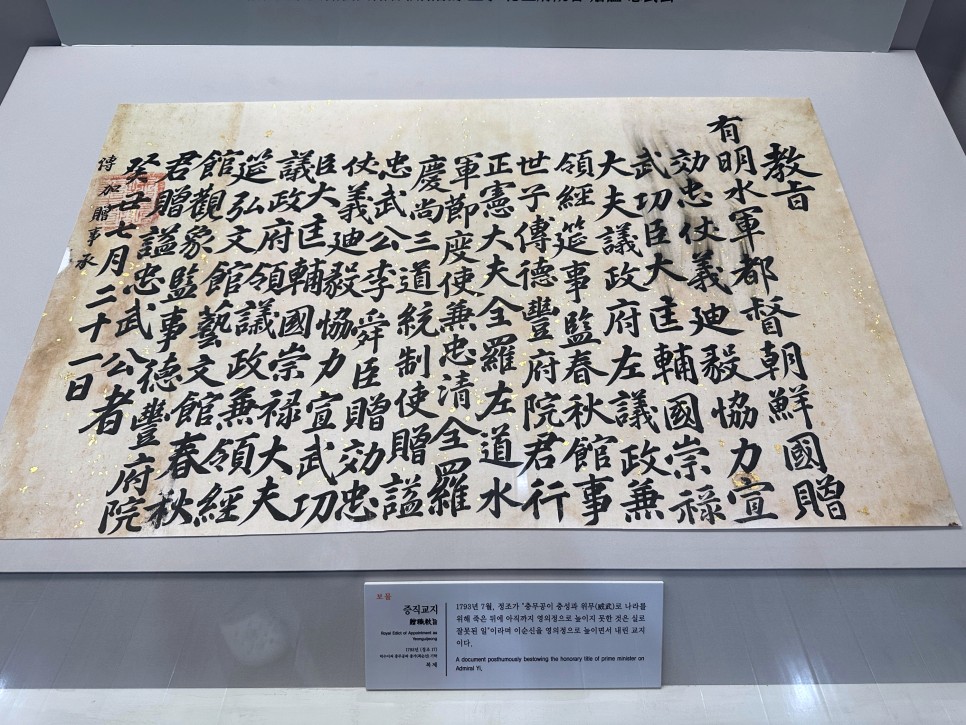 教旨
有明水軍都督朝鮮國贈
効忠仗義迪毅協力宣
武功臣大匡輔國崇禄
大夫議政府左議政兼
領經筵事監春秋館事
世子傅德豐府院君行
正憲大夫全羅左道水
軍節度使兼忠清全羅
慶尚三道統制使贈謚
忠武公李舜臣贈効忠
仗義迪毅協力宣武功
臣大匡輔國崇禄大夫
議政府領議政兼領經
筵弘文館藝文館春秋
館觀象監事德豐府院
君贈謚忠武公者
癸丑七月二十一日
傳加贈事承
보물
증직교지
贈職敎旨
Royal Edict of Appointment as
Yeonguijeong
1793년 (정조 17)
복제
1793년 7월, 정조가 "충무공이 충성과 위무(威武)로 나라를
위해 죽은 뒤에 아직까지 영의정으로 높이지 못한 것은 실로
잘못된 일"이라며 이순신을 영의정으로 높이면서 내린 교지
이다.
A document posthumously bestowing the honorary title of prime minister on
Admiral Yi.